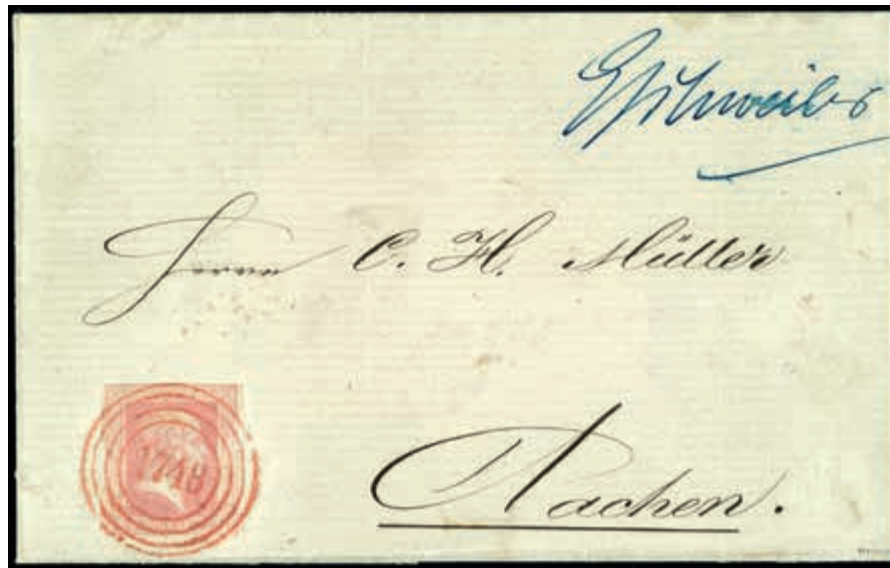 Eschweiler
Herrn C. H. Müller
Aachen.
1748